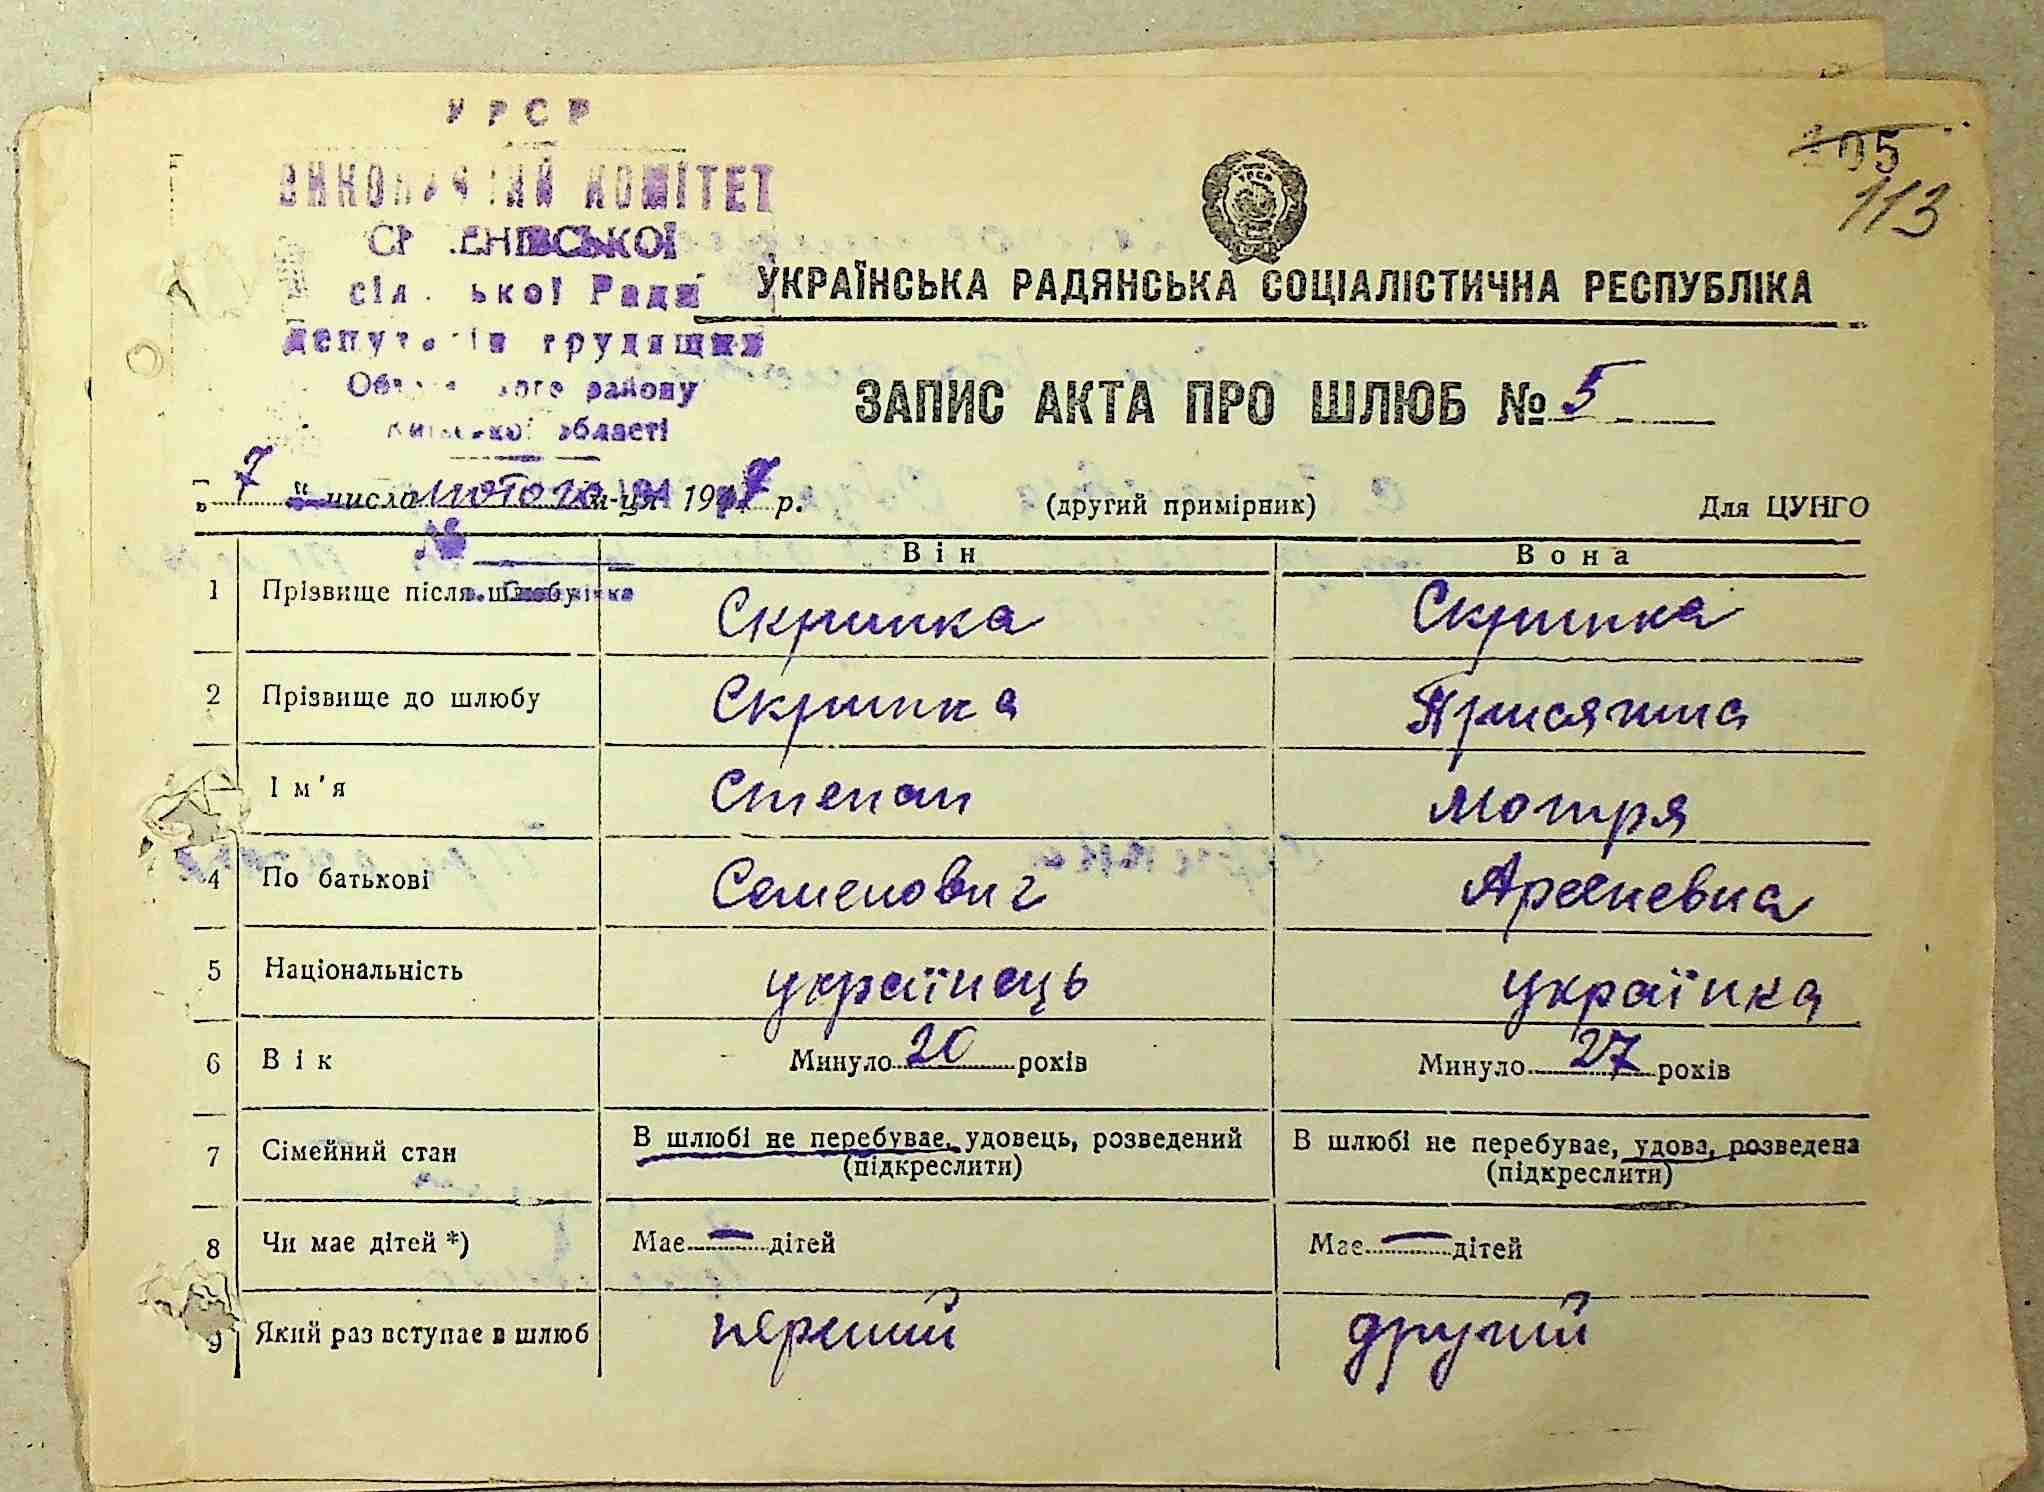 УРСР
ВИКОНАВЧИЙ КОМІТЕТ
сільської Ради
депутатів трудящих
району
Київської області
105
113
УКРАЇНСЬКА РАДЯНСЬКА СОЦІАЛІСТИЧНА РЕСПУБЛІКА
ЗАПИС АКТА ПРО ШЛЮБ № 5
„ 7 “ числа лютого м-ця 1947 р. (другий примірник) Для ЦУНГО
Він Вона
1 Прізвище після шлюбу Скрипка Скрипка
2 Прізвище до шлюбу Скрипка Присяжна
Ім'я Степан Мотря
4 По батькові Семенович Арсеневна
5 Національність українець українка
6 Вік Минуло 20 років Минуло 27 років
7 Сімейний стан В шлюбі не перебуває, удовець, розведений В шлюбі не перебуває, удова, розведена
(підкреслити) (підкреслити)
8 Чи має дітей *) Має — дітей Має — дітей
9 Який раз вступає в шлюб перший другий